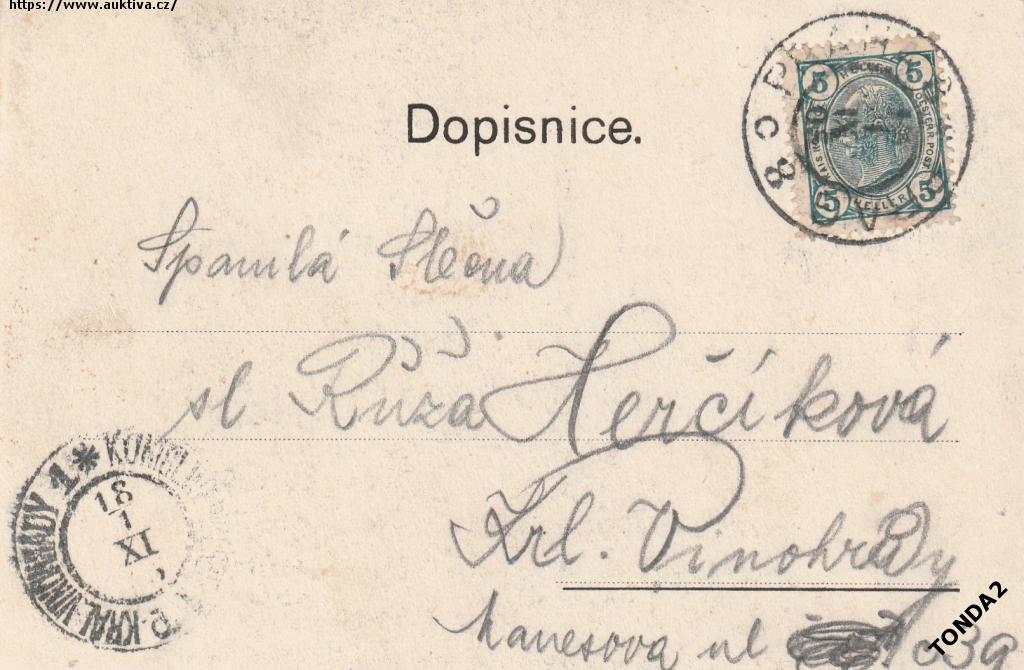 https://www.auktiva.cz/
Dopisnice.
5 HELLER 5
KAIS. K. OESTERR. POST
5 HELLER 5
8c
Spanilá Slečna
sl Růža Herčíková
Krl. Vinohrady
Manesova ul
KRÁL. VINOHRADY 1 *
18
1
XI
TONDA2